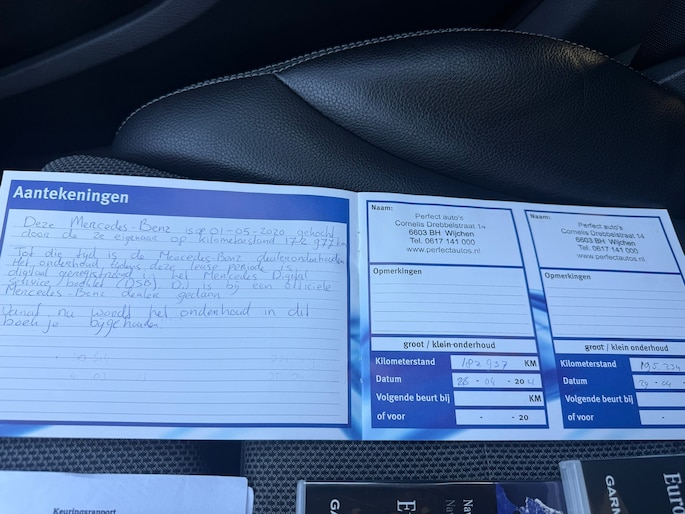 Aantekeningen
Deze Mercedes-Benz is op 01-05-2020 gekocht
door de 2e eigenaar op kilometerstand 172.977 km
Tot die tijd is de Mercedes-Benz dealeronderhouden
Het onderhoud tijdens deze lease periode is
digitaal geregistreerd in het Mercedes Digital
Service booklet (DSB). Dit is bij een officiele
Mercedes-Benz dealer gedaan
Vanaf nu wordt het onderhoud in dit
boekje bijgehouden
Naam:
Perfect auto's
Cornelis Drebbelstraat 14
6603 BH Wijchen
Tel. 0617 141 000
www.perfectautos.nl
Opmerkingen
groot / klein onderhoud
Kilometerstand KM
Datum 28 - 04 - 20
Volgende beurt bij KM
of voor - - 20
Naam:
Perfect auto's
Cornelis Drebbelstraat 14
6603 BH Wijchen
Tel. 0617 141 000
www.perfectautos.nl
Opmerkingen
groot / klein onderhoud
Kilometerstand
Datum
Volgende beurt bij
of voor - -
Keuringsrapport
GAR
Nav
Na
E
GARM
Euro